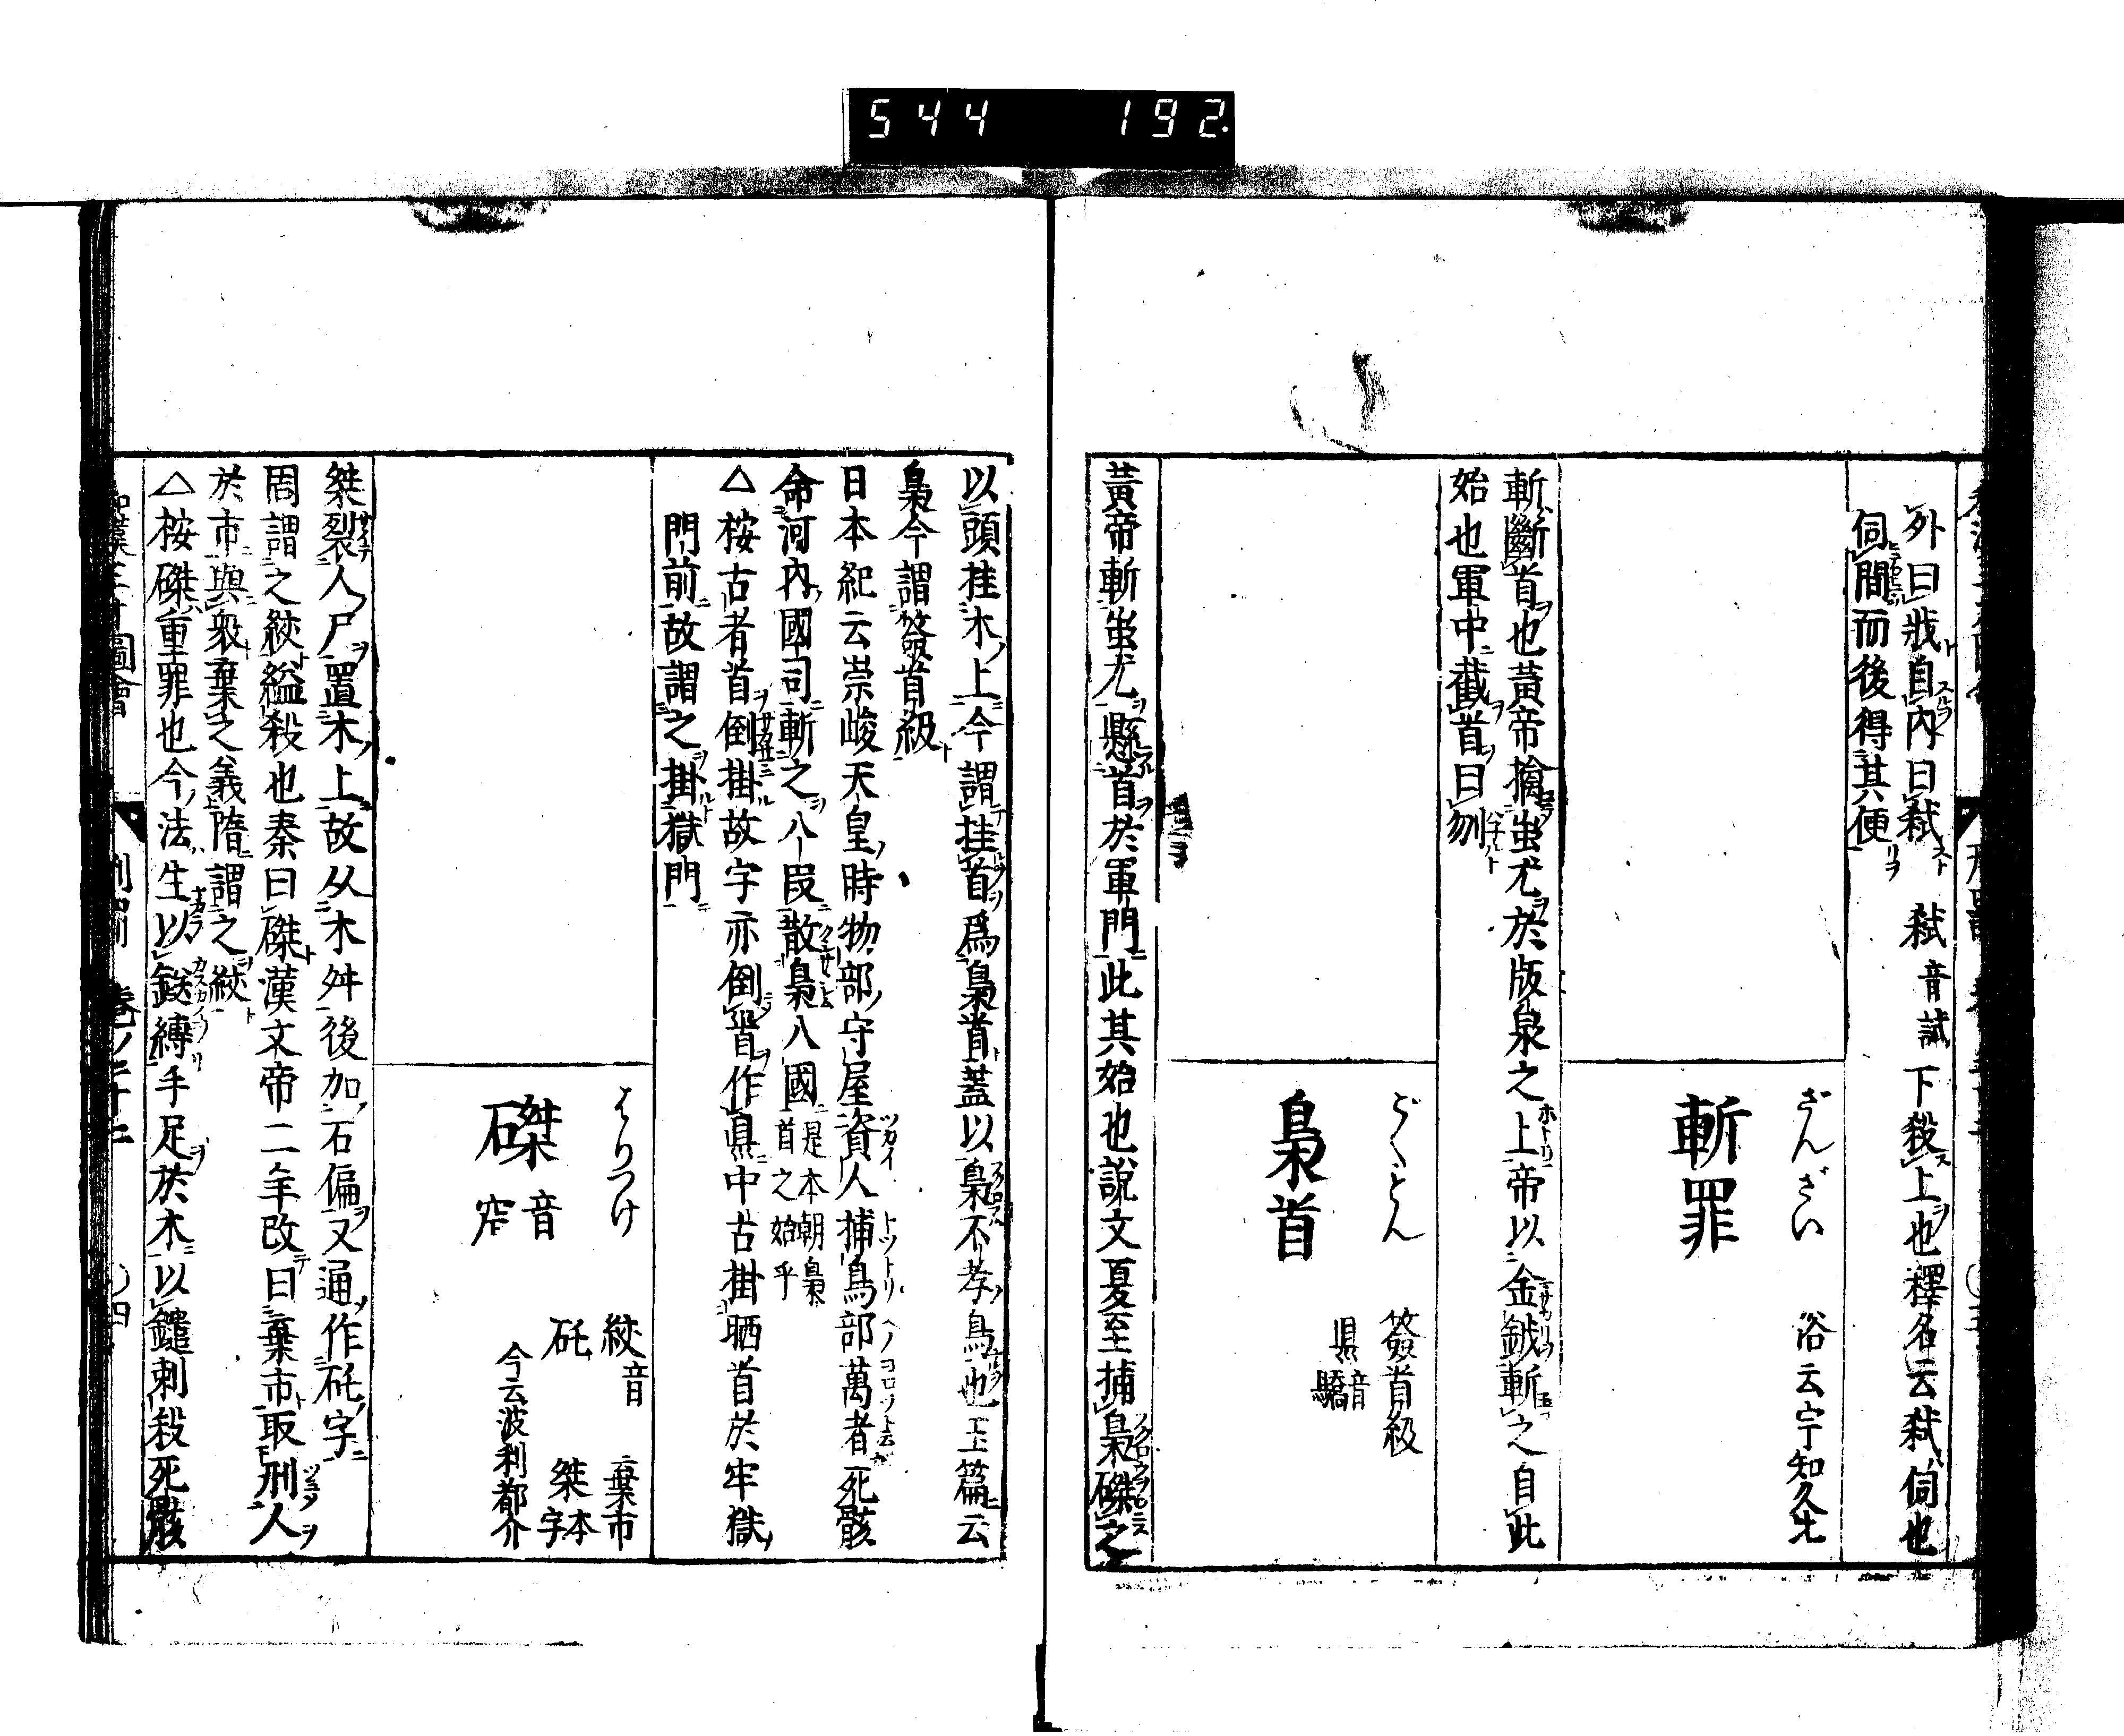 544 192.
外曰戕自內曰弑 弑音試 下殺上也釋名云弑伺也
伺間而後得其便
ざんざい
斬罪
俗云宇知久比
斬斷首也黃帝擒蚩尤於版泉之上帝以金鉞斬之自此
始也軍中截首曰刎
ごくもん
梟首
簽首級
県音驕
黃帝斬蚩尤懸首於軍門此其始也說文夏至捕梟磔之
以頭挂木上今謂挂首爲梟首蓋以梟不孝鳥也玉篇云
梟今謂簽首級
日本紀云崇峻天皇時物部守屋資人捕鳥部萬者死骸
命河內國司斬之八段散梟八國是本朝梟首之始乎
△桉古者首倒掛故字亦倒首作県中古掛晒首於牢獄
門前故謂之掛獄門
はりつけ
磔
音窄
絞音
矺
棄市
桀本字
今云波利都介
桀裂人尸置木上故从木舛後加石偏又通作矺字
周謂之絞縊殺也秦曰磔漢文帝二年改曰棄市取刑人
於市與衆棄之義隋謂之絞
△桉磔重罪也今法生以鎹縛手足於木以鑓刺殺死骸
和漢三才圖會 刑罰 卷ノ二十二 〇四